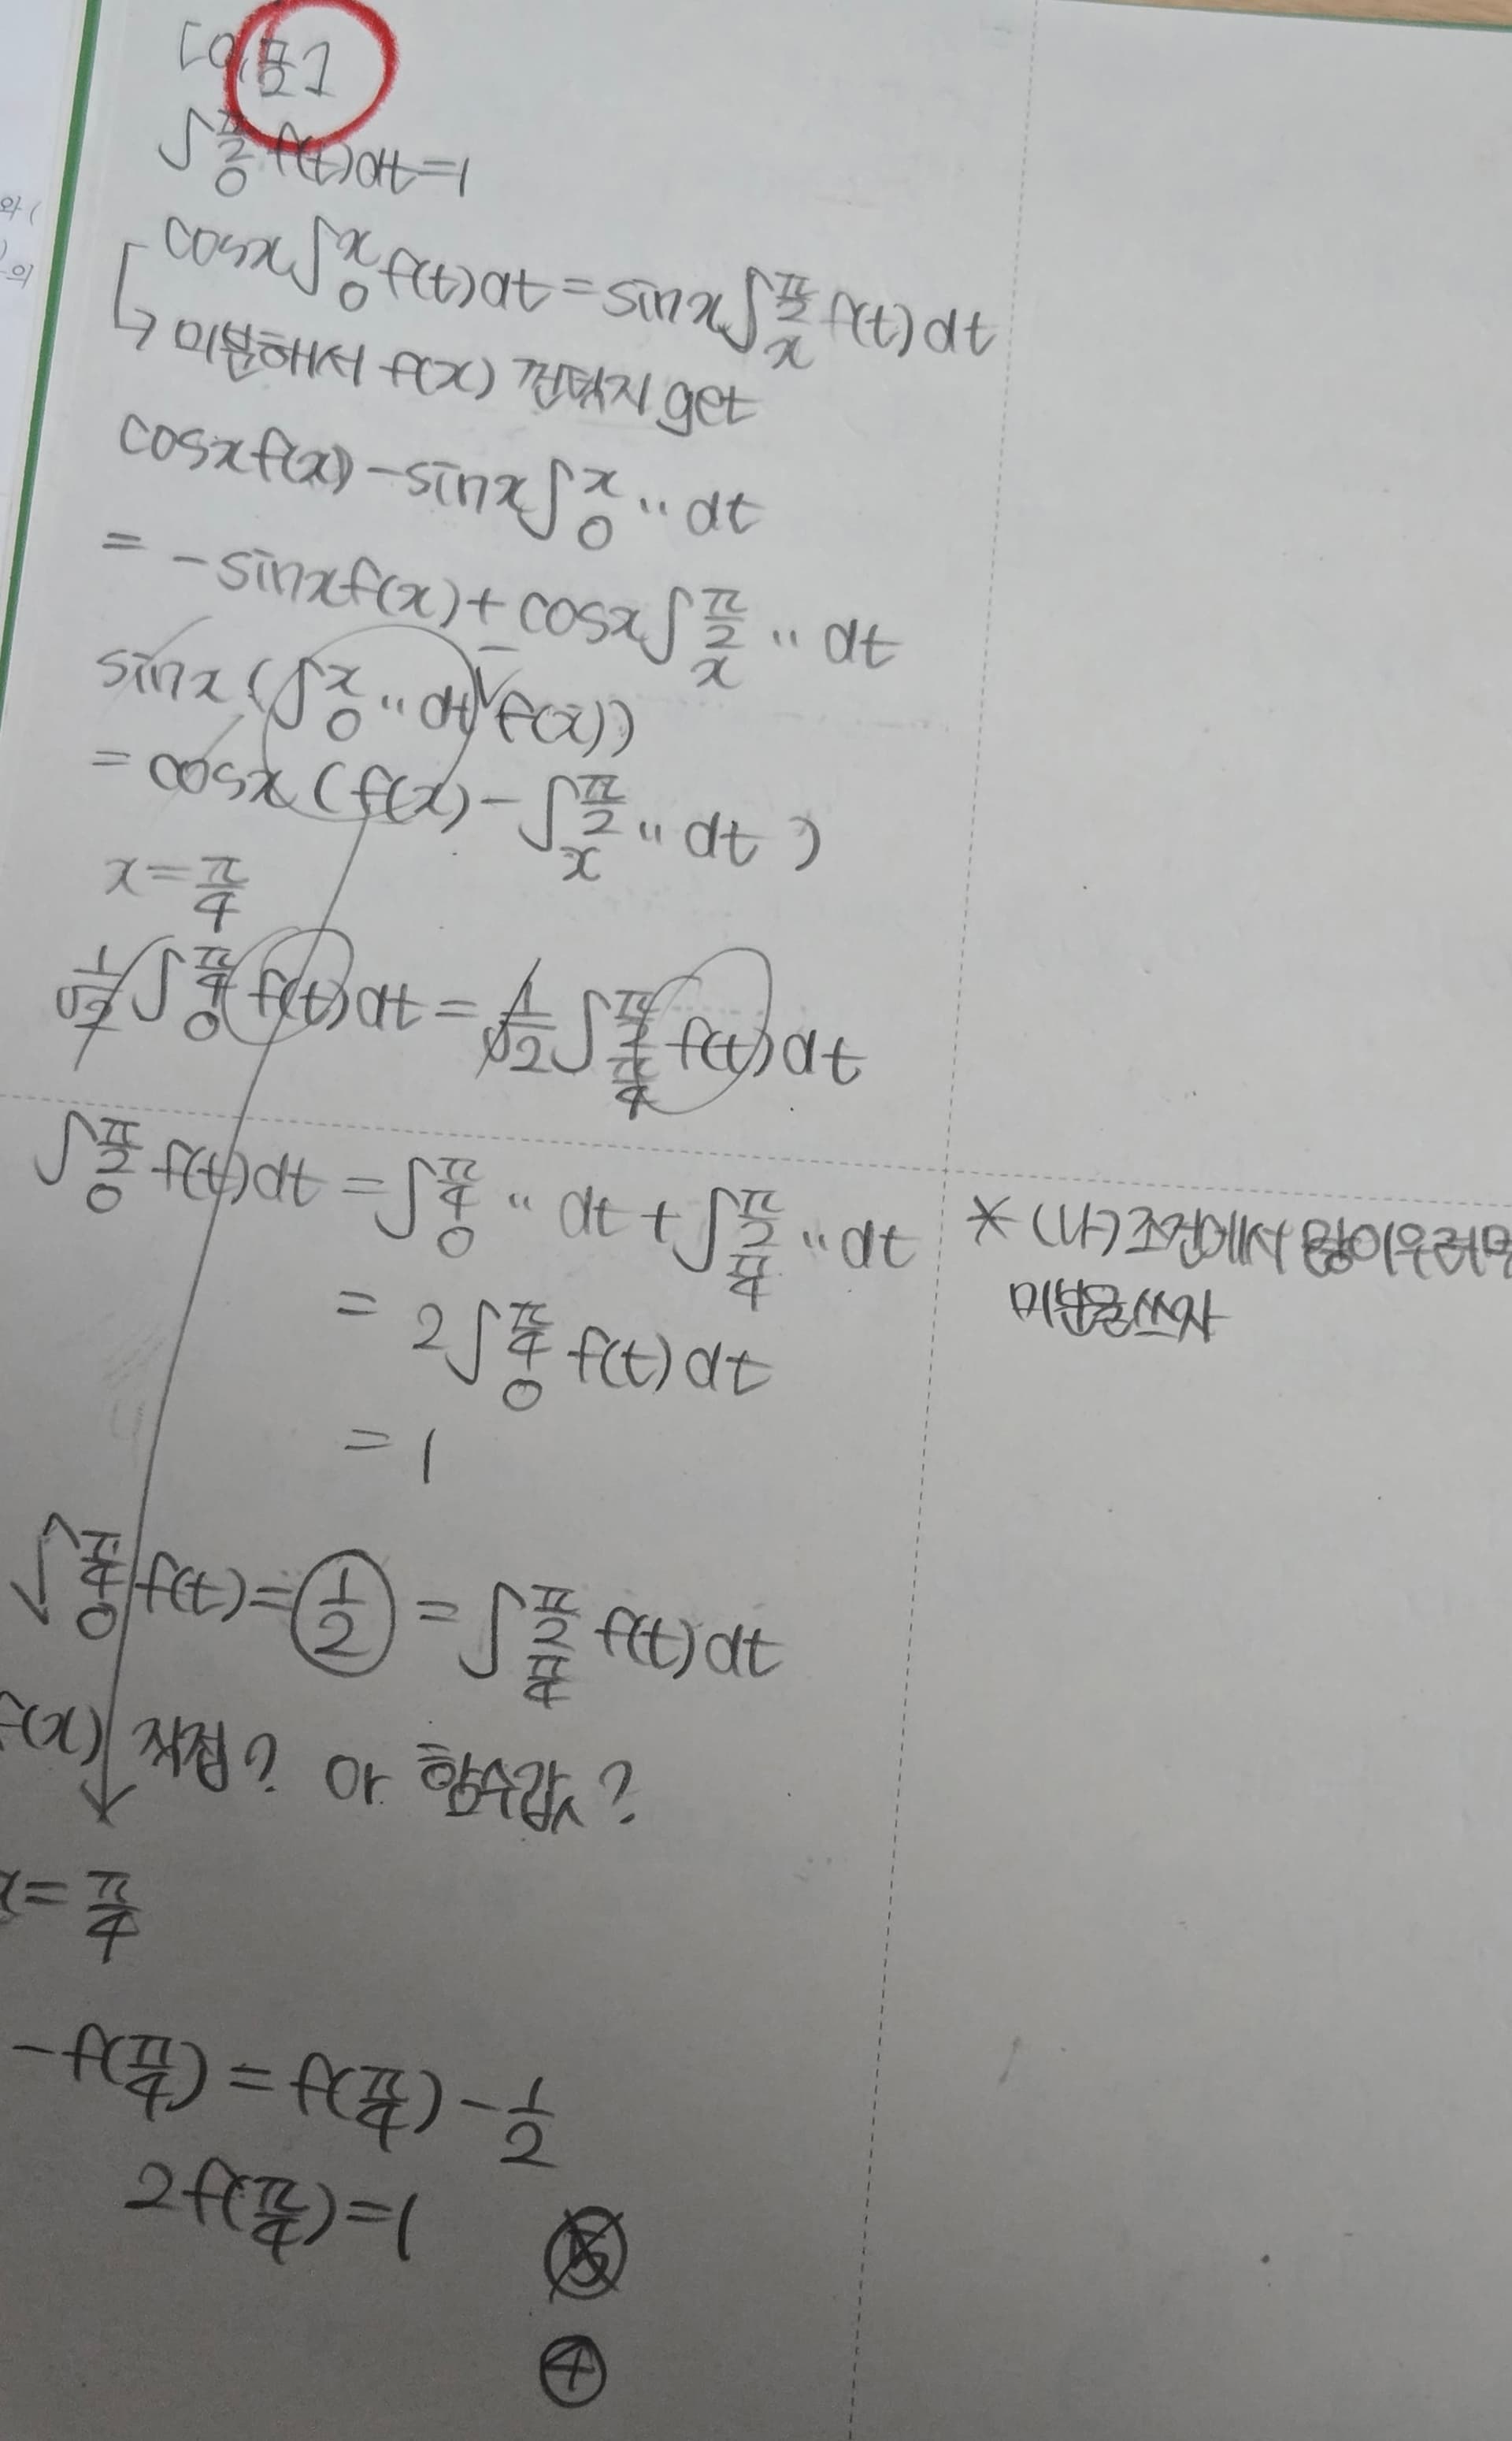 [0, π/2]
∫_0^{π/2} f(t)dt=1
cosx∫_0^x f(t)dt=sinx∫_x^{π/2} f(t)dt
↳ 미분해서 f(x) get
cosxf(x)-sinx∫_0^x 〃 dt
= -sinxf(x)+cosx∫_x^{π/2} 〃 dt
sinx(∫_0^x 〃 dt - f(x))
= cosx(f(x)-∫_x^{π/2} 〃 dt)
x=π/4
1/√2 ∫_0^{π/4} f(t)dt = 1/√2 ∫_{π/4}^{π/2} f(t)dt
∫_0^{π/2} f(t)dt = ∫_0^{π/4} 〃 dt + ∫_{π/4}^{π/2} 〃 dt
= 2∫_0^{π/4} f(t)dt
= 1
∫_0^{π/4} f(t)= 1/2 = ∫_{π/4}^{π/2} f(t)dt
f(x) 직접? or 함수값?
x=π/4
-f(π/4) = f(π/4) - 1/2
2f(π/4)=1
⑤
④
* (나)조건에서
미분을쓰자
와(
)
의